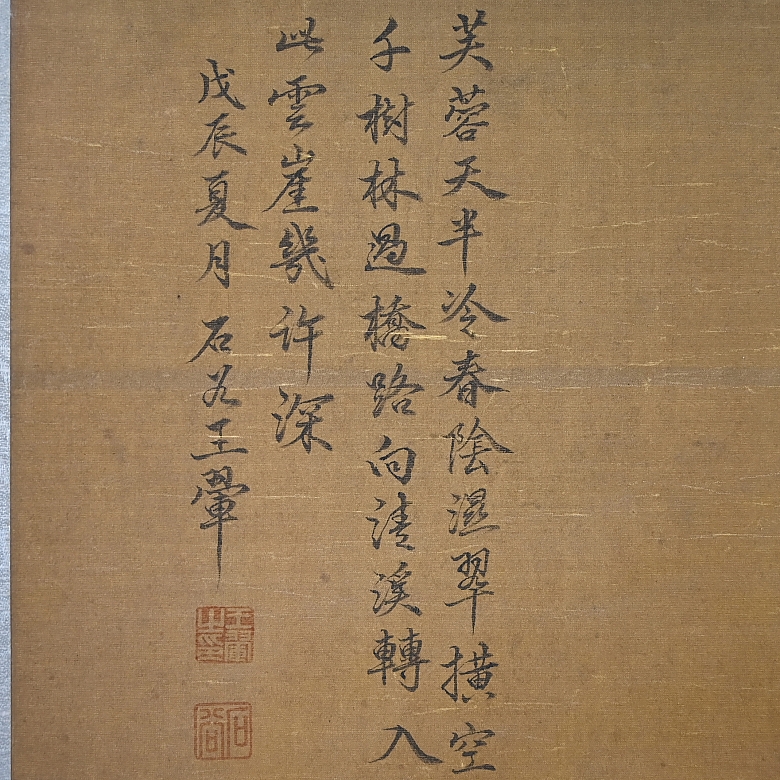 芙蓉天半冷春陰濕翠橫空
千樹林過橋路向清溪轉入
此雲崖幾許深
戊辰夏月石谷王翬
王翬之印
石谷